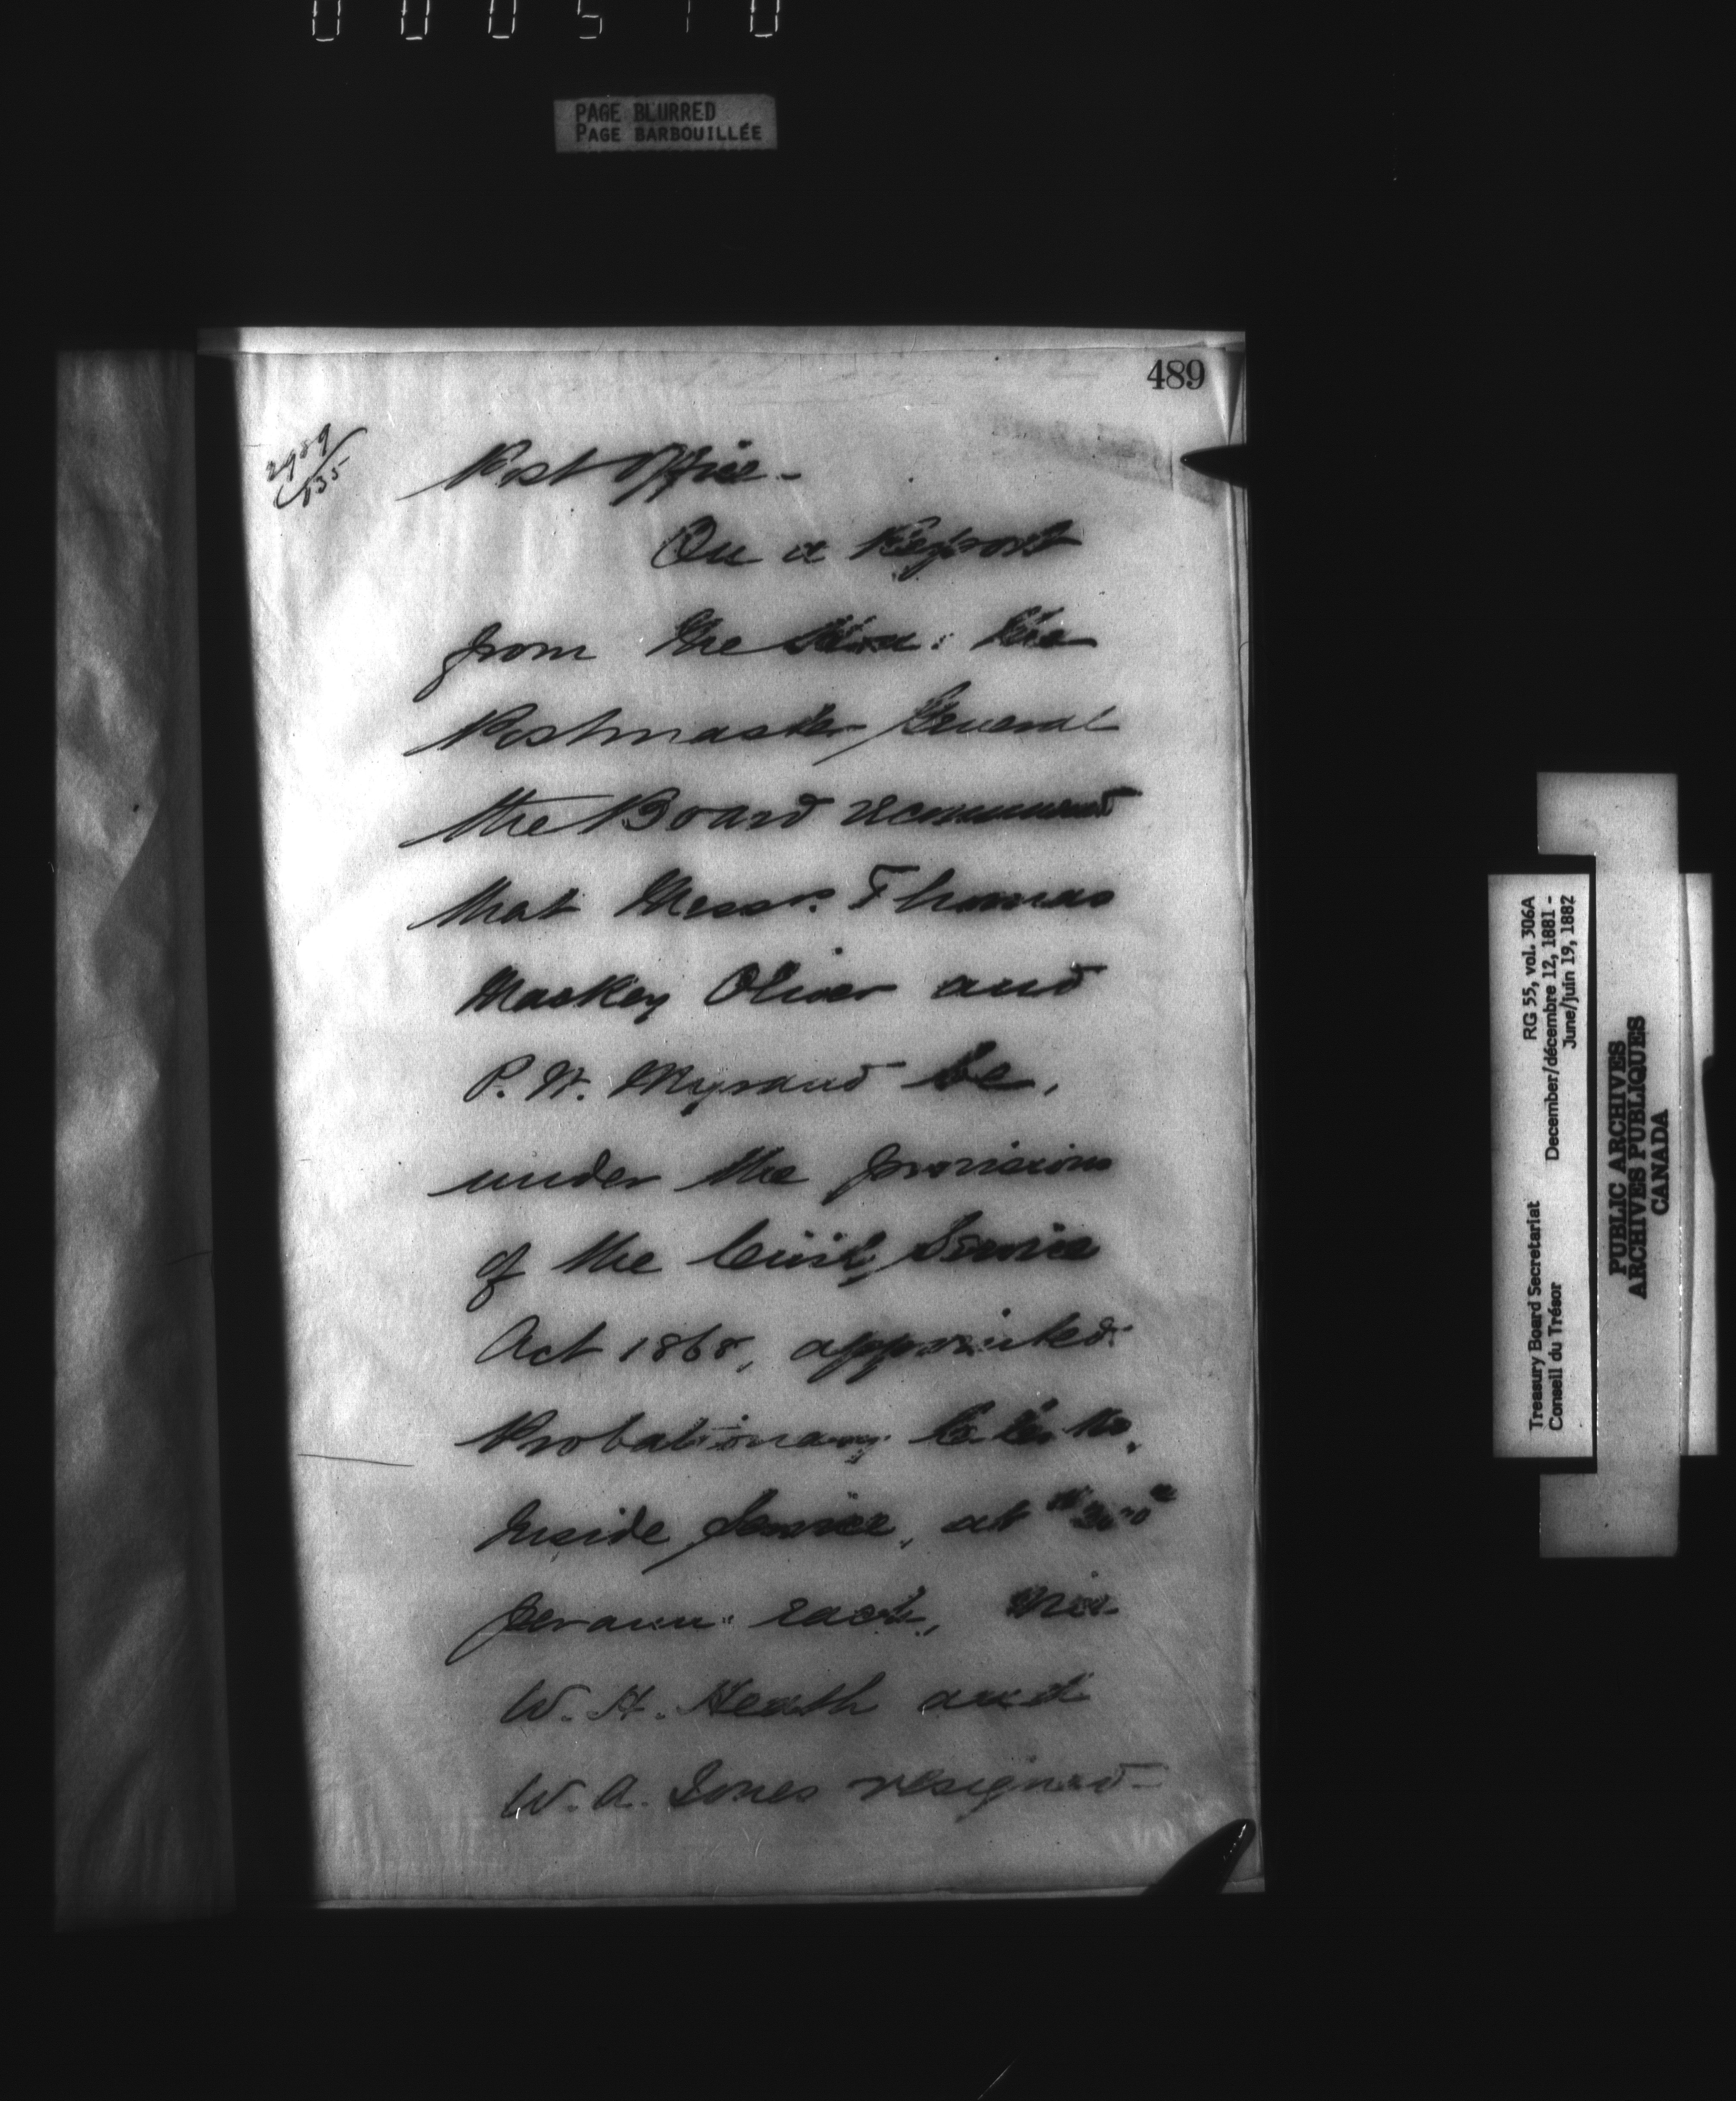 000510
PAGE BLURRED
PAGE BARBOUILLÉE
489
2989/135
Post Office-
On a Report
from the Hon: the
Postmaster General
the Board recommend
that Messrs. Thomas
Mackey Oliver and
P. W. Myrand be,
under the provisions
of the Civil Service
Act 1868, appointed
Probationary Clerks,
Inside Service, at $300
per ann: each, vice
W. H. Heath and
W. A. Jones resigned-
Treasury Board Secretariat RG 55, vol. 306A
Conseil du Trésor December/décembre 12, 1881 -
June/juin 19, 1882
PUBLIC ARCHIVES
ARCHIVES PUBLIQUES
CANADA